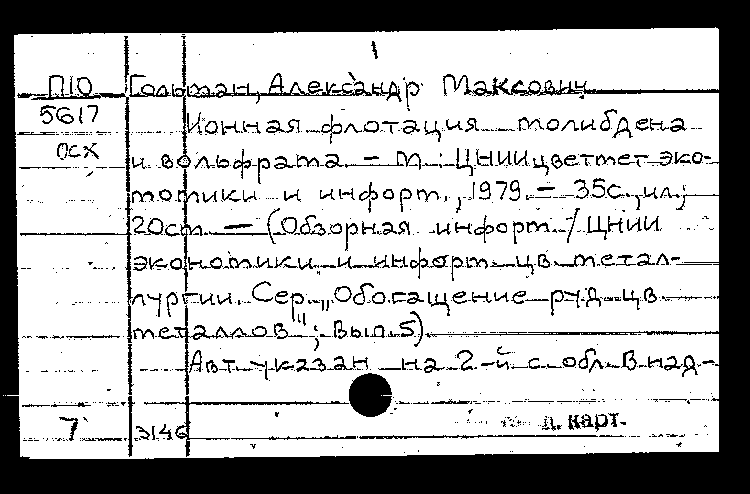 1
П10 Гольман, Александр Максович
5617 Ионная флотация молибдена
осх и вольфрама. – М.: ЦНИИцветмет эко-
номики и информ., 1979. – 35с., ил.;
20см. — (Обзорная информ. / ЦНИИ
экономики и информ. цв. метал-
лургии. Сер. „Обогащение руд цв.
металлов"; Вып.5).
Авт. указан на 2-й с. обл. В над-
7 3146 д. карт.